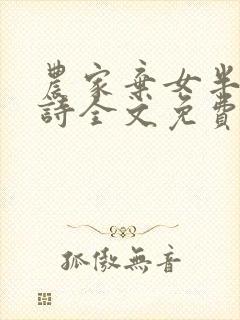 農家棄女半
詩全文免費
孤傲無音